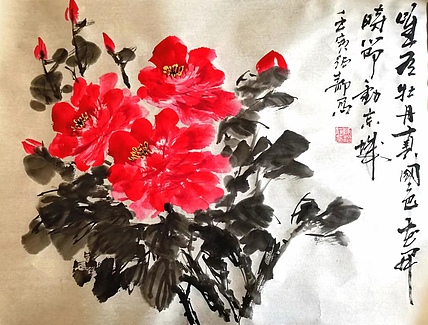 唯有牡丹真國色花開
時節動京城
壬寅